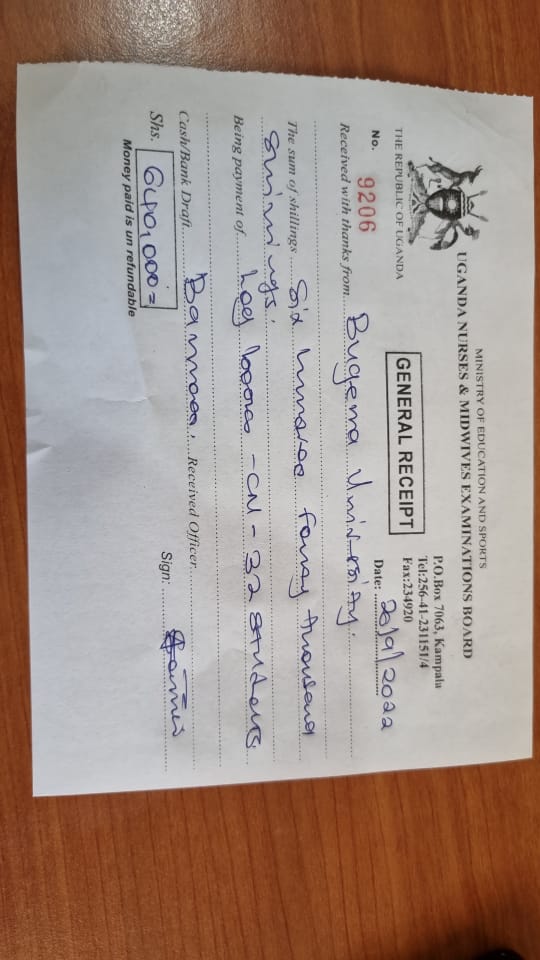 MINISTRY OF EDUCATION AND SPORTS
UGANDA NURSES & MIDWIVES EXAMINATIONS BOARD
THE REPUBLIC OF UGANDA
P.O.Box 7063, Kampala
Tel:256-41-231151/4
Fax:234920
GENERAL RECEIPT
No. 9206
Date: 20/9/2022
Received with thanks from Bugema University.
The sum of shillings Six hundred fourty thousand
shillings.
Being payment of Log books - CN - 32 students
Cash/Bank Draft Received Officer
Shs. 640,000=
Sign:
Money paid is un refundable